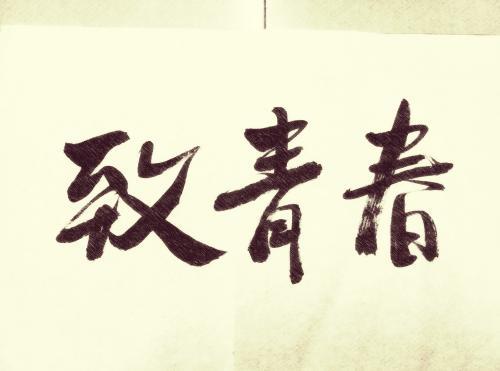 致青春